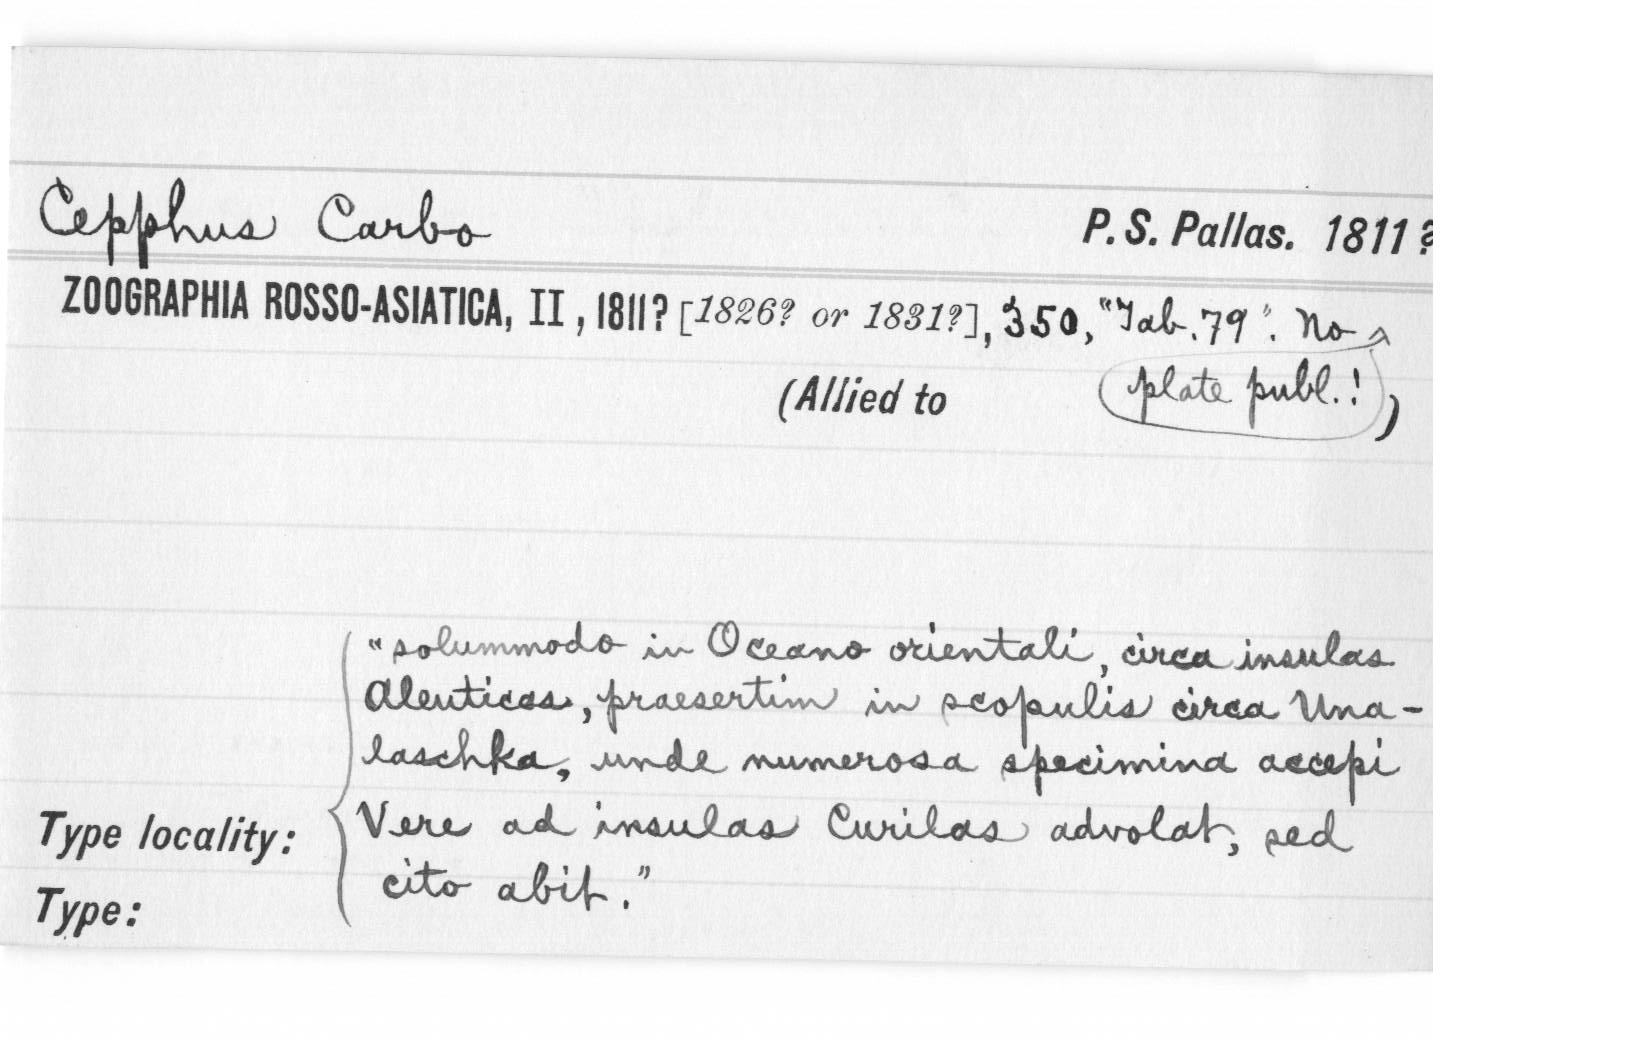 Cepphus Carbo P. S. Pallas. 1811?
ZOOGRAPHIA ROSSO-ASIATICA, II, 1811? [1826? or 1831?], 350, "Tab. 79". No
(Allied to plate publ.!)
"solummodo in Oceano orientali, circa insulas
Aleuticas, praesertim in scopulis circa Una-
laschka, unde numerosa specimina accepi
Type locality: Vere ad insulas Curilas advolat, sed
cito abit."
Type: